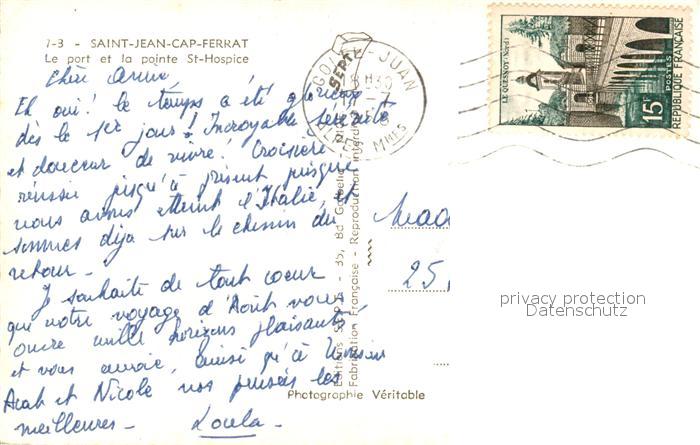 7-3 - SAINT-JEAN-CAP-FERRAT
Le port et la pointe St-Hospice
Chère
Eh oui! le temps a été glorieux
dès le 1er jour! Incroyable sérénité
et douceur de vivre! Croisière
réussie jusqu'à présent puisque
nous avons atteint l'Italie, et
sommes déja sur le chemin du
retour -
Je souhaite de tout coeur
que votre voyage d'Août vous
ouvre mille horizons plaisants,
et vous envoie, ainsi qu'à
et Nicole nos pensées les
meilleures -
GOLFE-JUAN
ALPES Mmes
LE QUESNOY (Nord)
15F
POSTES
REPUBLIQUE FRANÇAISE
Mad
25,
35, Bd
Fabrication Française - Reproduction interdite
Photographie Véritable
privacy protection
Datenschutz